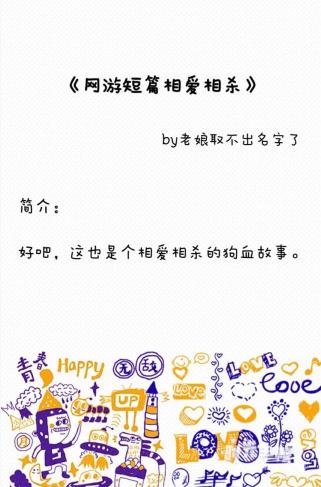 《网游短篇相爱相杀》
by老娘取不出名字了
简介：
好吧，这也是个相爱相杀的狗血故事。
青春 Happy 无敌 LOVE
UP LOVE love
LOVE